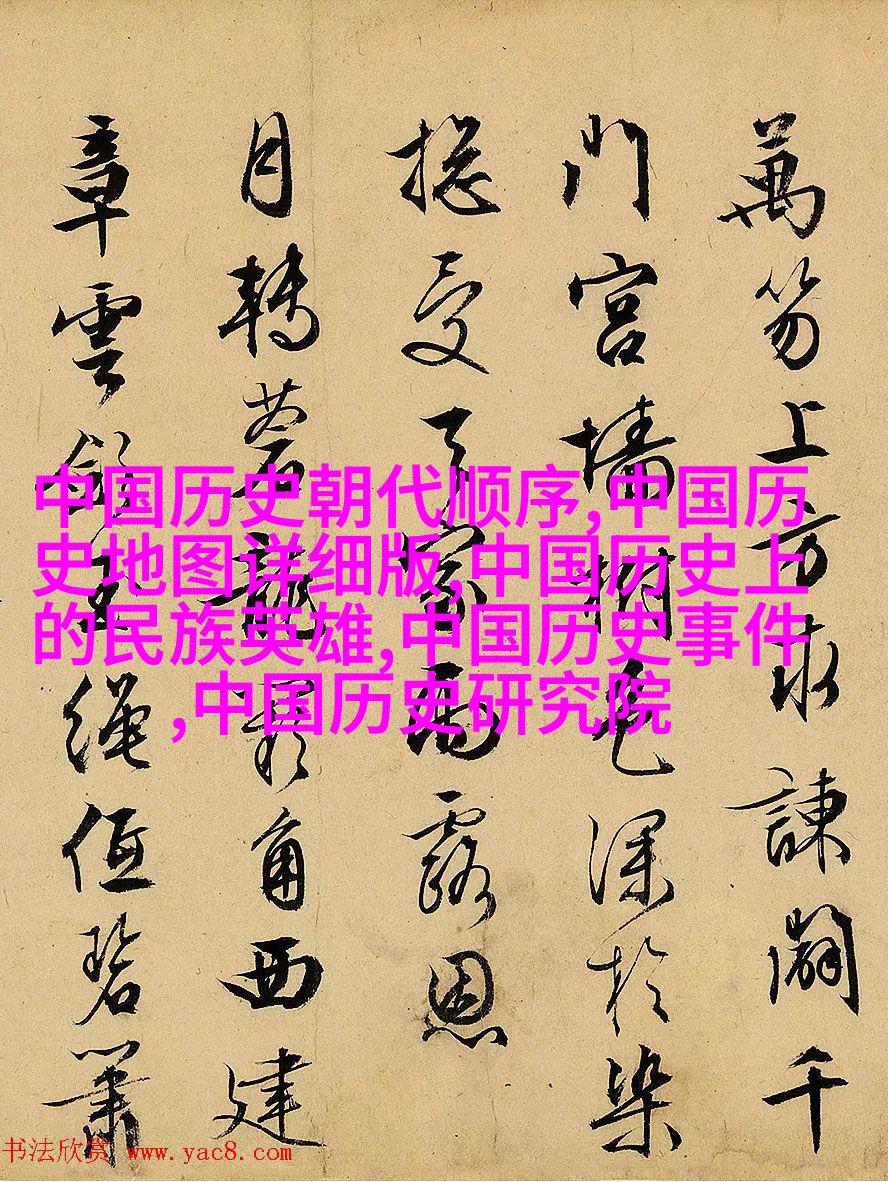 萬笏上方求諫闢千
門宮墻柳色深於染
揔受天家雨露恩
月轉蒼龍闕角西建
章雲斂玉繩低碧簫
中国历史朝代顺序,中国历
史地图详细版,中国历史上
的民族英雄,中国历史事件
,中国历史研究院
书法欣赏 www.yac8.com